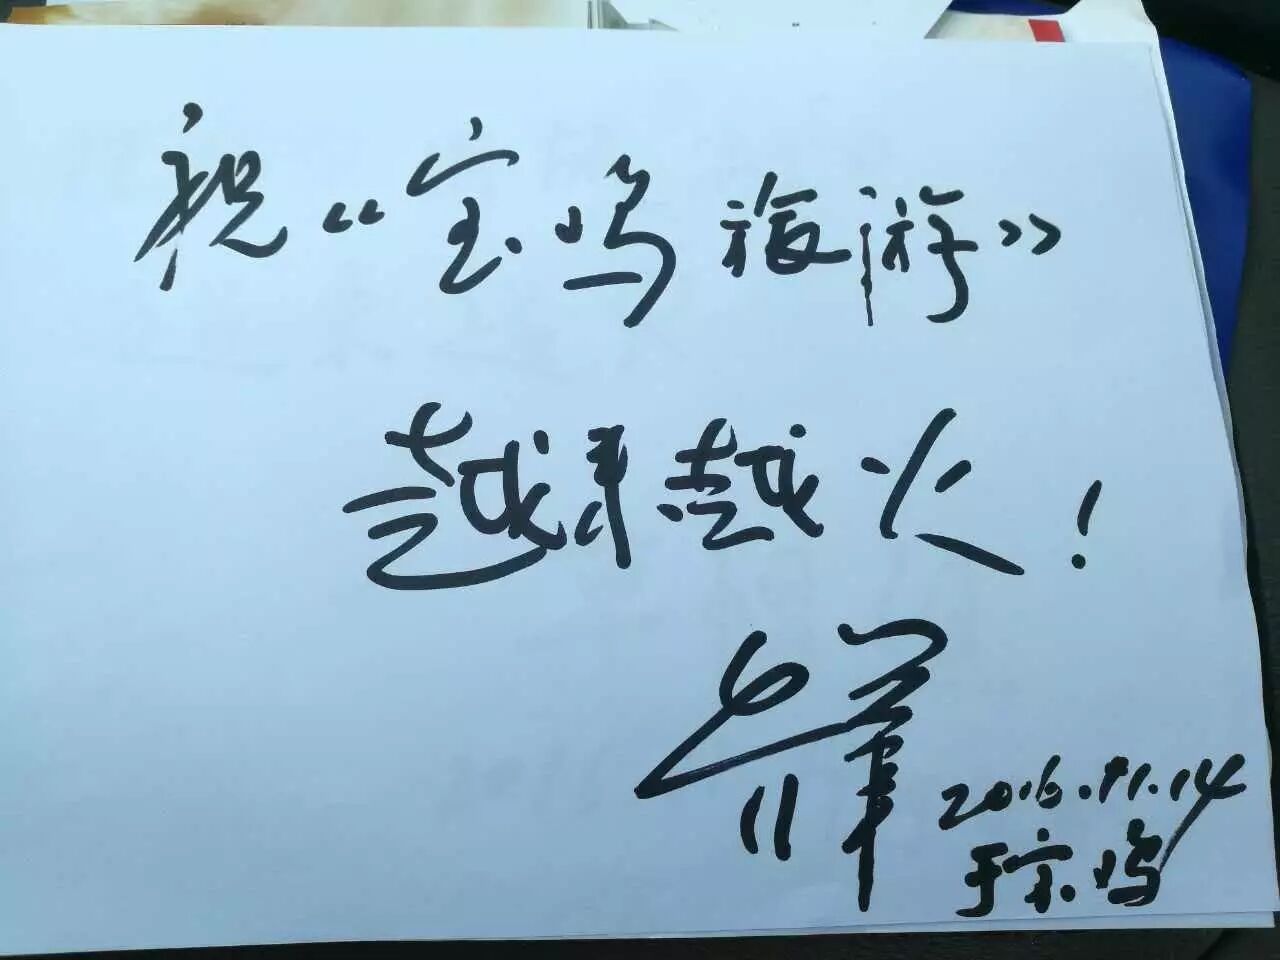 祝《宝鸡旅游》
越来越火！
2016.11.14
于宝鸡